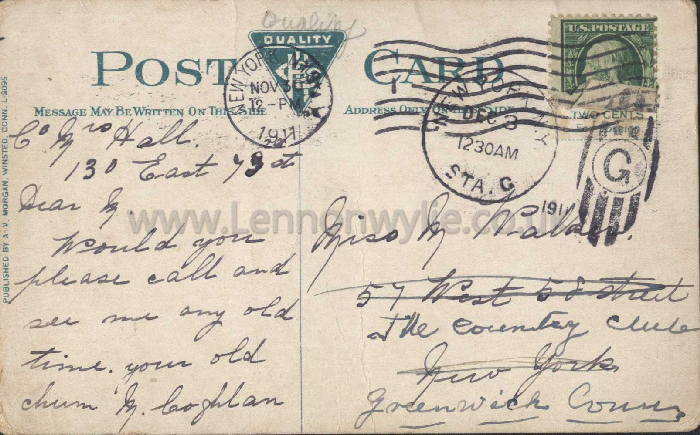 Quality
QUALITY
POST CARD
MESSAGE MAY BE WRITTEN ON THIS SIDE
ADDRESS ONLY ON
NEW YORK, N.Y.
NOV
12-PM
1911
NEW YORK, N.Y.
DEC 3
1230AM
STA. G
1911
G
U.S. POSTAGE
TWO CENTS
PUBLISHED BY A. V. MORGAN, WINSTED, CONN. L-9095
Co Mrs Hall.
130 East 73 st
Dear M.
Would you
please call and
see me any old
time. your old
chum M. Coghlan
Miss M
57 West 58 street
The Country Club
New York
Greenwich Conn
www.Lennonwylie.co.uk